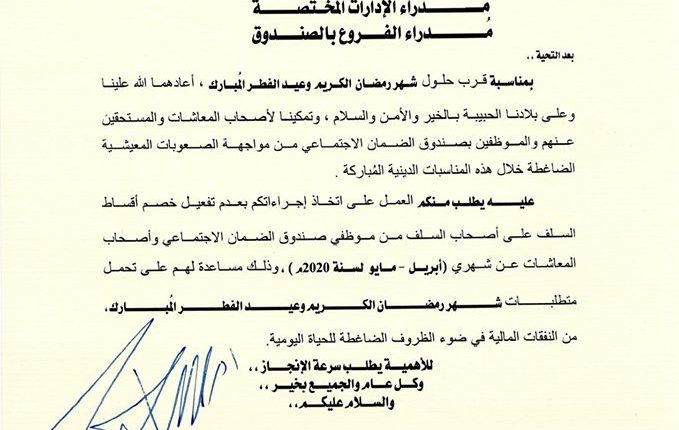 مدراء الإدارات المختصة
مُدراء الفروع بالصندوق
بعد التحية ،،
بمناسبة قرب حلول شهر رمضان الكريم وعيد الفطر المُبارك ، أعادهما الله علينا
وعلى بلادنا الحبيبة بالخير والأمن والسلام ، وتمكينا لأصحاب المعاشات والمستحقين
عنهم والموظفين بصندوق الضمان الاجتماعي من مواجهة الصعوبات المعيشية
الضاغطة خلال هذه المناسبات الدينية المُباركة .
عليه يطلب منكم العمل على اتخاذ إجراءاتكم بعدم تفعيل خصم أقساط
السلف على أصحاب السلف من موظفي صندوق الضمان الاجتماعي وأصحاب
المعاشات عن شهري (أبريل - مايو لسنة 2020م) ، وذلك مساعدة لهم على تحمل
متطلبات شهر رمضان الكريم وعيد الفطر المُبارك،
من النفقات المالية في ضوء الظروف الضاغطة للحياة اليومية.
للأهمية يطلب سرعة الإنجاز ،،
وكل عام والجميع بخير ،،
والسلام عليكم ،،